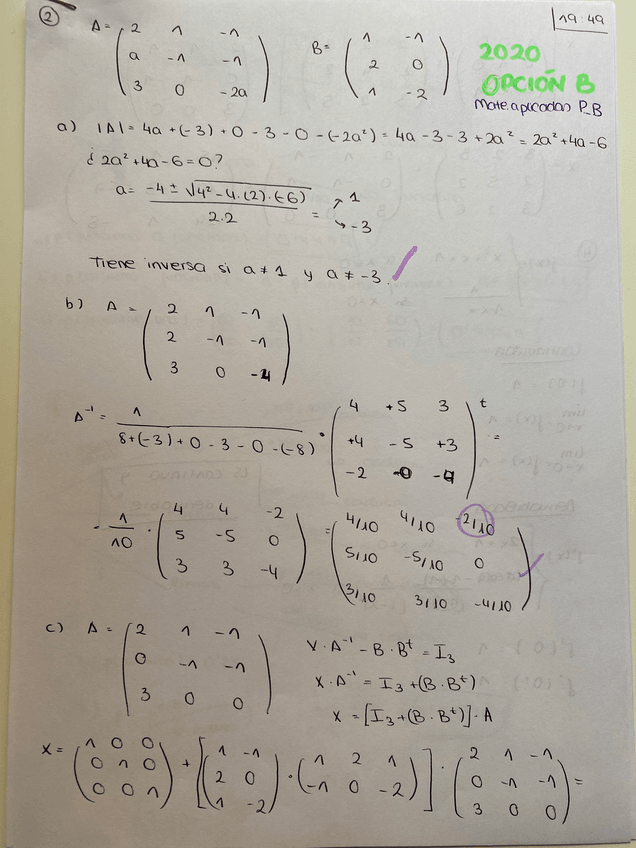 ② 19:49
A = ( 2 1 -1 B = ( 1 -1
a -1 -1 2 0
3 0 -2a ) 1 -2 )
2020
OPCIÓN B
Mate.aplicadas PB
a) |A| = 4a + (-3) + 0 - 3 - 0 - (-2a²) = 4a - 3 - 3 + 2a² = 2a² + 4a - 6
¿ 2a² + 4a - 6 = 0?
a = -4 ± √4² - 4·(2)·(-6) / 2·2 = ↗ 1 ↘ -3
Tiene inversa si a ≠ 1 y a ≠ -3.
b) A = ( 2 1 -1
2 -1 -1
3 0 -4 )
A⁻¹ = 1 / 8+(-3)+0-3-0-(-8) · ( 4 +5 3
+4 -5 +3
-2 -0 -4 )ᵗ =
- 1/10 · ( 4 4 -2 = ( 4/10 4/10 -2/10
5 -5 0 5/10 -5/10 0
3 3 -4 ) 3/10 3/10 -4/10 )
c) A = ( 2 1 -1
0 -1 -1
3 0 0 )
X · A⁻¹ - B · Bᵗ = I₃
X · A⁻¹ = I₃ + (B · Bᵗ)
X = [I₃ + (B · Bᵗ)] · A
X = ( 1 0 0 + [ ( 1 -1 · ( 1 2 1 ] · ( 2 1 -1
0 1 0 2 0 -1 0 -2 ) 0 -1 -1 =
0 0 1 ) 1 -2 ) 3 0 0 )